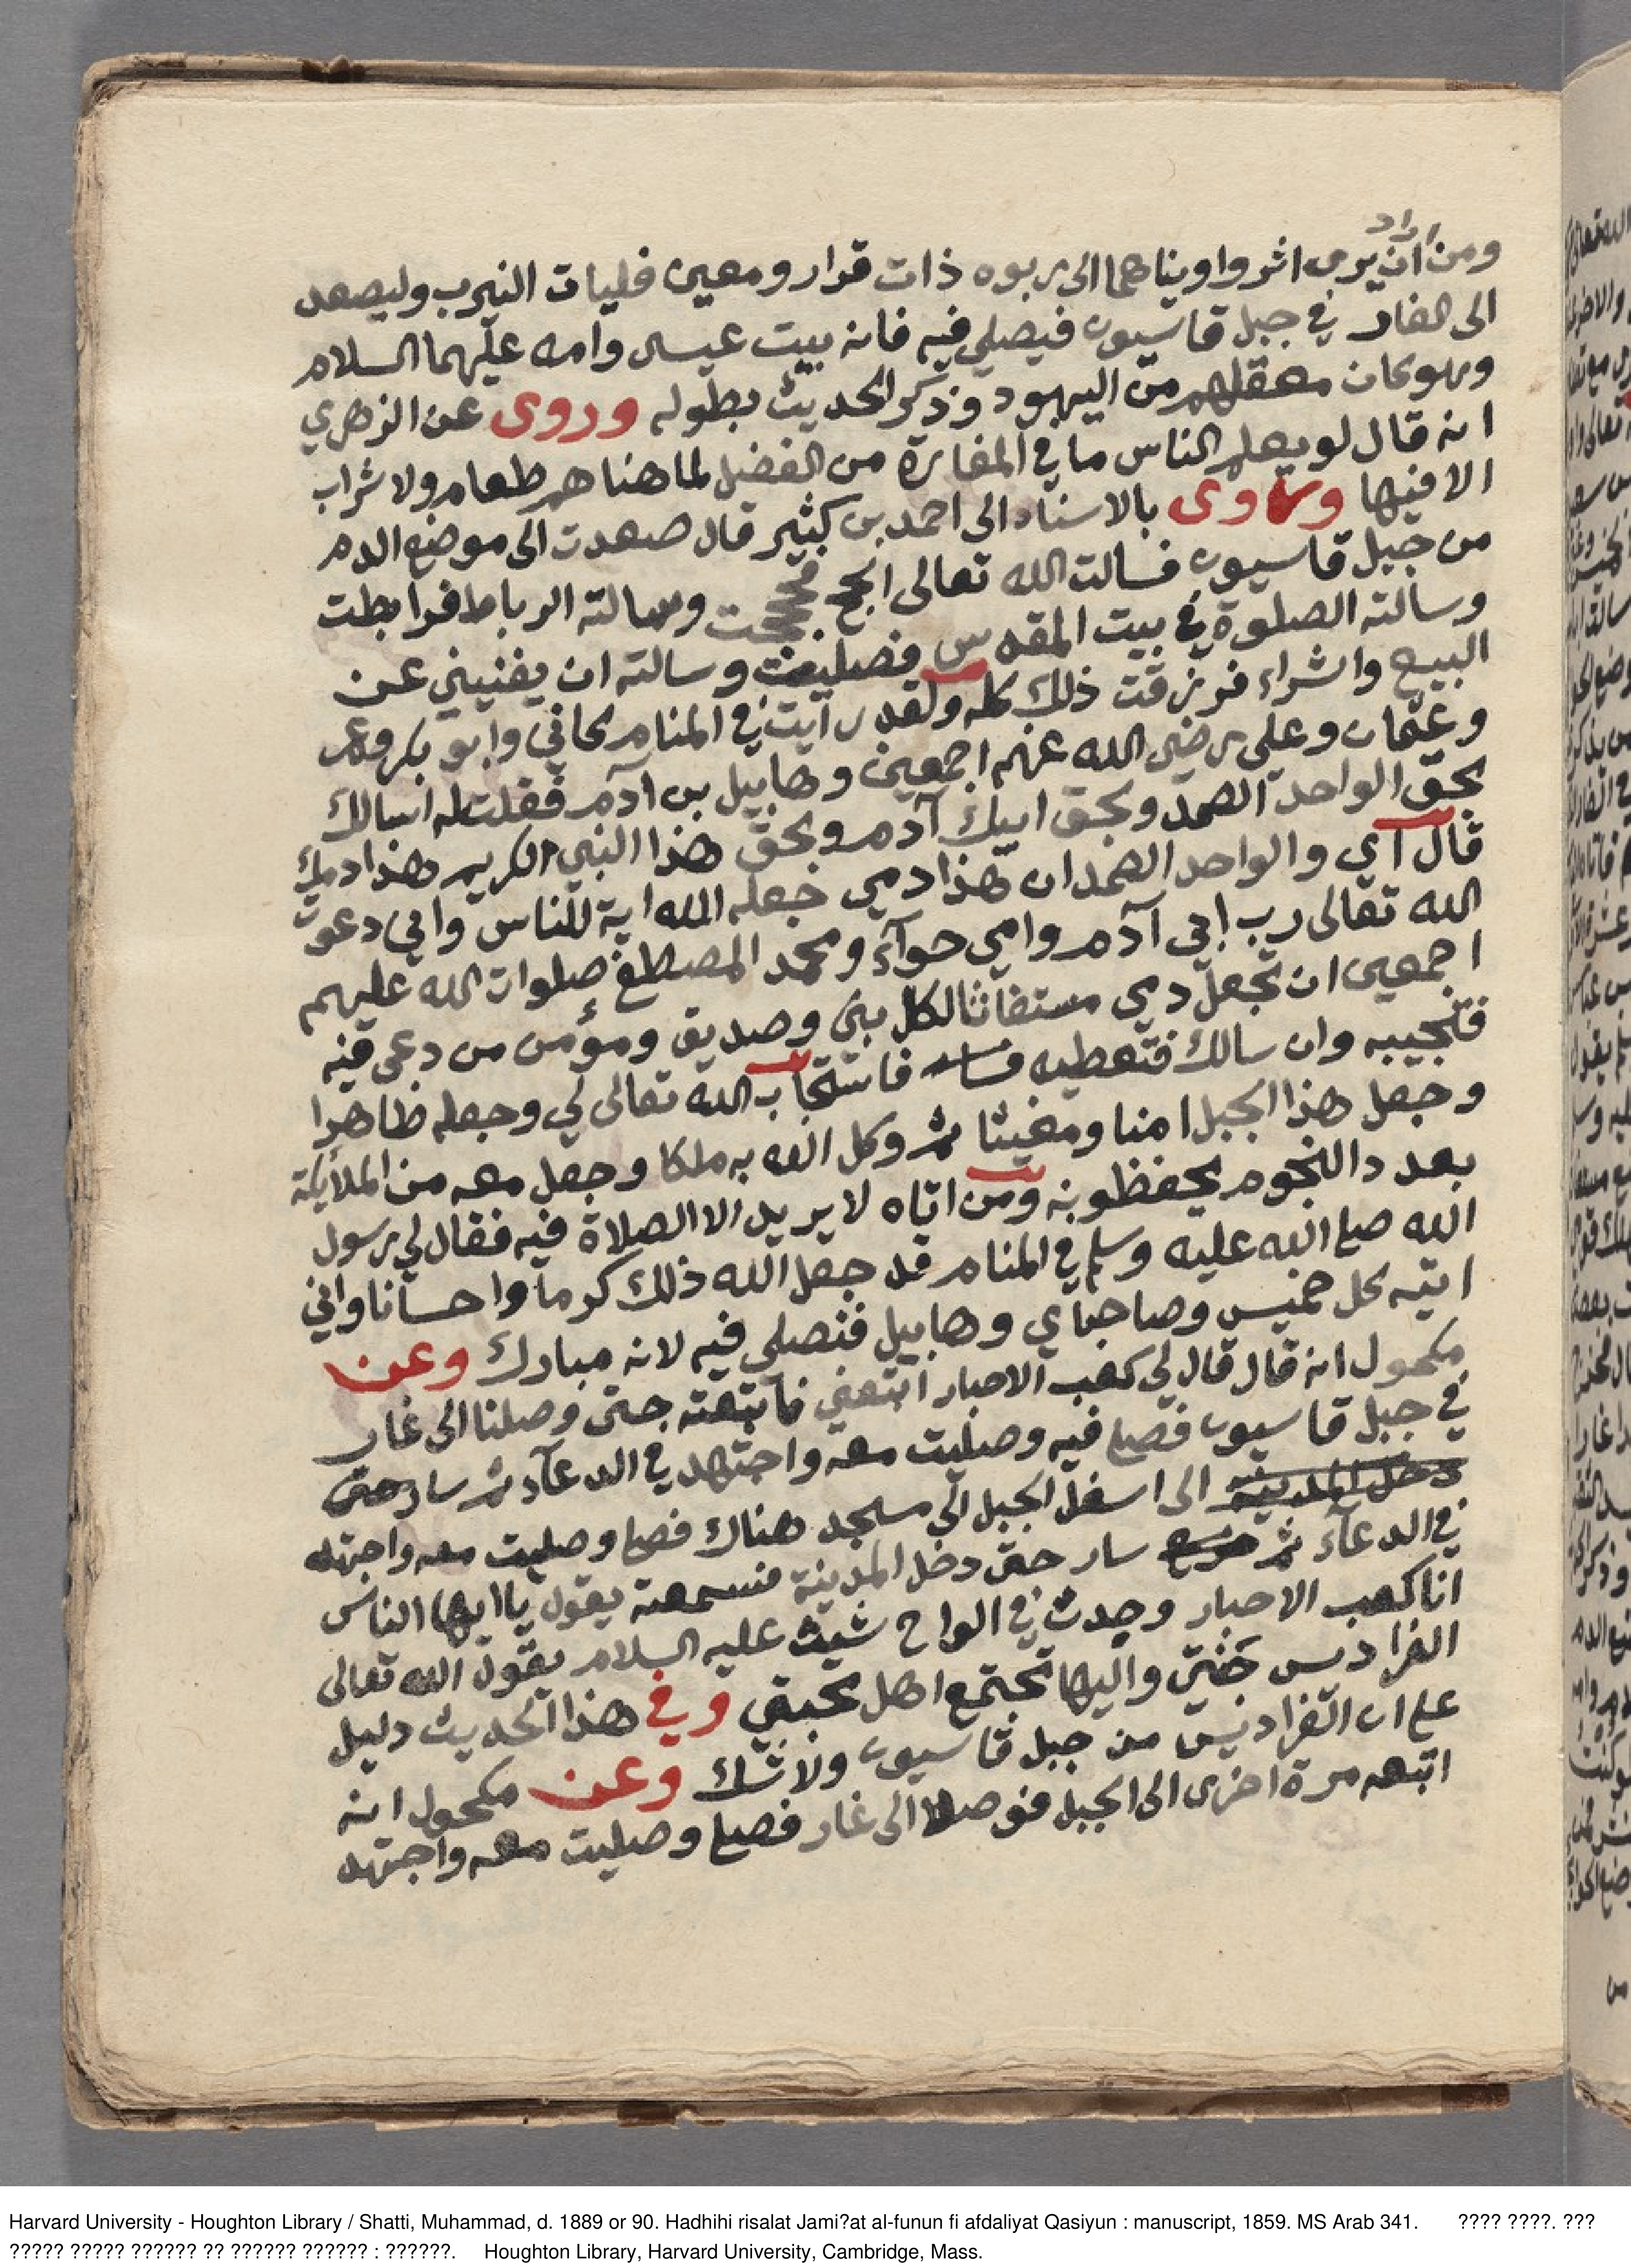 اراد
ومن ان يرى اثر واويناهما الى ربوه ذات قرار ومعين فليات النيرب وليصعد
الى الغار في جبل قاسيون فيصلي فيه فانه بيت عيسى وامه عليهما السلام
وهو كان معقلهم من اليهود وذكر الحديث بطوله وروى عن الزهري
انه قال لو يعلم الناس ما في المغارة من الفضل لما هناهم طعام ولا شراب
الا فيها وروى بالاسناد الى احمد بن كثير قال صعدت الى موضع الدم
من جبل قاسيون فسالت الله تعالى الحج فحججت وسالته الرباط فرابطت
وسالته الصلوة في بيت المقدس فصليت وسالته ان يغنيني عن
البيع واشراء فرزقت ذلك كله ولقد رايت في المنام كاني وابو بكر وعمر
وعثمان وعلي رضي الله عنهم اجمعين وهابيل بن آدم فقلت له اسالك
بحق الواحد الصمد وبحق ابيك آدم وبحق هذا النبي الكريم هذا دمك
قال اي والواحد الصمد ان هذا دمي جعله الله اية للناس واني دعوت
الله تعالى رب ابي آدم وامي حوآء ومحمد المصطفى صلوات الله عليهم
اجمعين ان تجعل دمي مستغاثا لكل نبي وصديق ومؤمن من دعى فيه
فتجيبه وان سالك فتعطيه فاستجاب الله تعالى لي وجعله ظاهرا
وجعل هذا الجبل امنا ومغيثا ثم وكل الله به ملكا وجعل معه من الملائكة
بعدد النجوم يحفظونه ومن اتاه لا يريد الا الصلاة فيه فقال لي رسول
الله صلى الله عليه وسلم في المنام قد جعل الله ذلك كرما واحسانا واني
اتيه كل خميس وصاحباي وهابيل فنصلي فيه لانه مبارك وعن
مكحول انه قال قال لي كعب الاحبار اتبعني فاتبعته حتى وصلنا الى غار
في جبل قاسيون فصلى فيه وصليت معه واجتهد في الدعآء ثم سار حتى
دخل المدينة الى اسفل الجبل الى مسجد هناك فصلى وصليت معه واجتهد
في الدعآء ثم سار حتى دخل المدينة فسمعته يقول يا ايها الناس
انا كعب الاحبار وجدت في الواح شيث عليه السلام يقول الله تعالى
الفراديس جنتي واليها تجتمع اهل محبتي وفي هذا الحديث دليل
على ان الفراديس من جبل قاسيون ولا شك وعن مكحول انه
اتبعه مرة اخرى الى الجبل فوصلا الى غار فصلى وصليت معه واجتهد
من
Harvard University - Houghton Library / Shatti, Muhammad, d. 1889 or 90. Hadhihi risalat Jami?at al-funun fi afdaliyat Qasiyun : manuscript, 1859. MS Arab 341. ???? ????. ???
????? ????? ?????? ?? ?????? ?????? : ??????. Houghton Library, Harvard University, Cambridge, Mass.